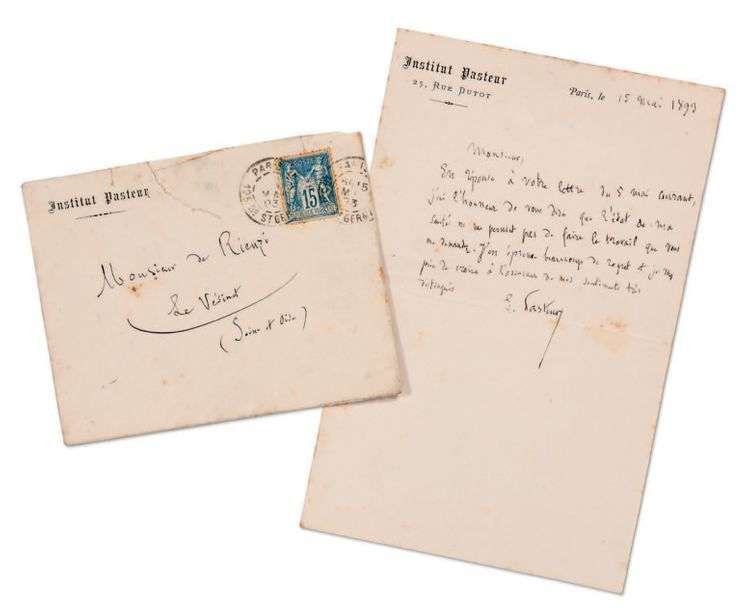 Institut Pasteur
Monsieur de Rienzi
Le Vésinet
(Seine et Oise)
15
Institut Pasteur
25, Rue Dutot
Paris, le 15 mai 1893
Monsieur,
En réponse à votre lettre du 5 mai courant,
j'ai l'honneur de vous dire que l'état de ma
santé ne me permet pas de faire le travail que vous
me demandez. J'en éprouve beaucoup de regret et je vous
prie de croire à l'assurance de mes sentiments très
distingués
L. Pasteur